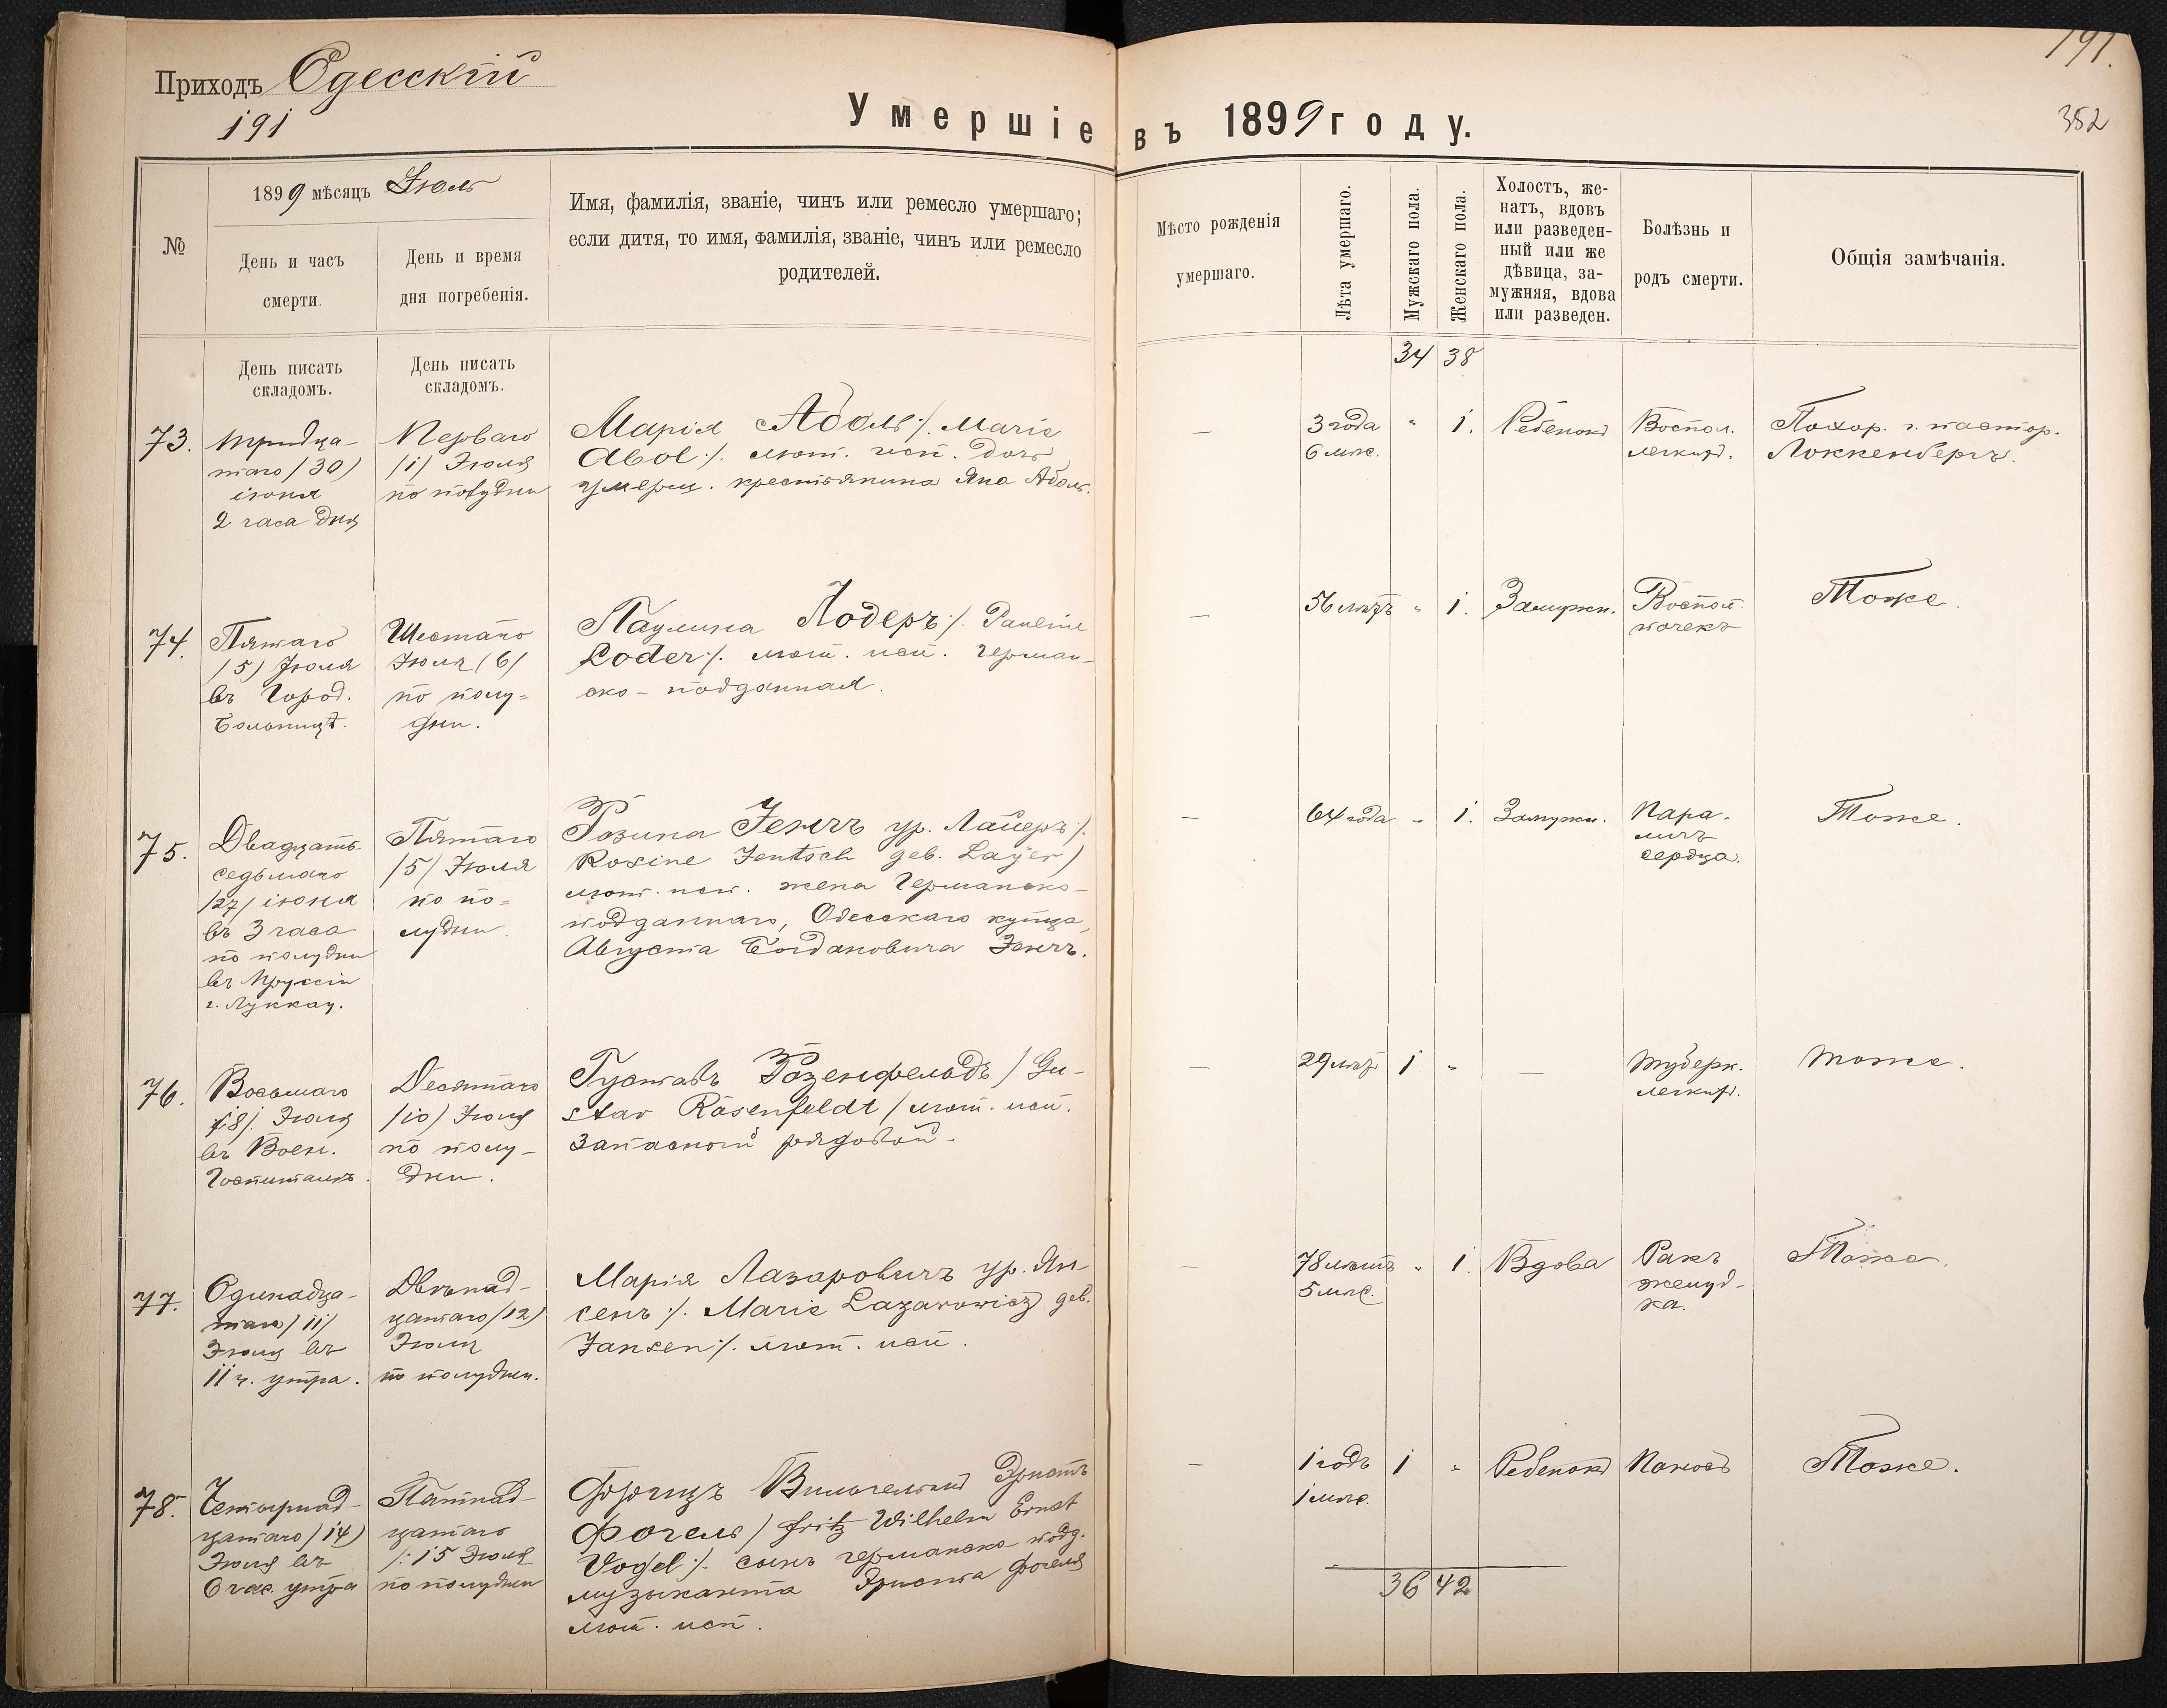 Приходъ Одесскій
191
191.
352
Умершіе въ 1899 году.
№
1899 мѣсяцъ Іюль
День и часъ
смерти.
День и время
дня погребенія.
Имя, фамилія, званіе, чинъ или ремесло умершаго;
если дитя, то имя, фамилія, званіе, чинъ или ремесло
родителей.
Мѣсто рожденія
умершаго.
Лѣта умершаго.
Мужскаго пола.
Женскаго пола.
Холостъ, же-
натъ, вдовъ
или разведен-
ный или же
дѣвица, за-
мужняя, вдова
или разведен.
Болѣзнь и
родъ смерти.
Общія замѣчанія.
День писать
складомъ.
День писать
складомъ.
34 38
73.
тридца-
таго /30/
іюня
2 часа дня
Перваго
/1/ Іюля
по полудни
Марія Аболь /. Marie
Abol /. лют. исп. дочь
умерш. крестьянина Яна Аболь.
—
3 года
6 мѣс.
" 1.
Ребенокъ
Воспал.
легкихъ.
Похор. г. пастор.
Локкенбергъ.
74.
Пятаго
/5/ Іюля
въ Город.
больницѣ.
Шестаго
Іюля /6/
по полу-
дни.
Паулина Лодеръ /. Pauline
Loder /. лют. исп. герман-
ско-подданная.
—
56 лѣтъ
" 1.
Замужн.
Воспал.
почекъ
Тоже.
75.
Двадцать
седьмаго
/27/ іюня
въ 3 часа
по полудни
въ Пруссіи
г. Луккау.
Пятаго
/5/ Іюля
по по-
лудни.
Розина Іенчъ ур. Лайеръ /.
Rosine Jentsch geb. Layer /
лют. исп. жена Германско-
подданнаго, Одесскаго купца,
Августа Богдановича Іенчъ.
—
64 года
" 1.
Замужн.
Пара-
личъ
сердца.
Тоже.
76.
Восьмаго
/8/. Іюля
въ Воен.
Госпиталѣ.
Десятаго
/10/ Іюля
по полу-
дни.
Густавъ Розенфельдъ / Gu-
stav Rosenfeldt / лют. исп.
запасный рядовой.
—
29 лѣтъ
1 "
—
туберк.
легкихъ.
тоже.
77.
Одинадца-
таго /11/
Іюля въ
11 ч. утра.
Двѣнад-
цатаго /12/
Іюля
по полудни.
Марія Лазаровичъ ур. Ян-
сенъ /. Marie Lazarowicz geb.
Jansen /. лют. исп.
—
78 лѣтъ
5 мѣс.
" 1.
Вдова
Ракъ
желуд-
ка.
Тоже.
78.
Четырнад-
цатаго /14/
Іюля въ
6 час. утра
Пятнад-
цатаго
/: 15 Іюля
по полудни
Фрицъ Вильгельмъ Эрнстъ
Фогель / Fritz Wilhelm Ernst
Vogel /. сынъ германско подд.
музыканта Эрнста Фогеля
лют. исп.
—
1 годъ
1 мѣс.
1 "
Ребенокъ
Поносъ
Тоже.
36 42